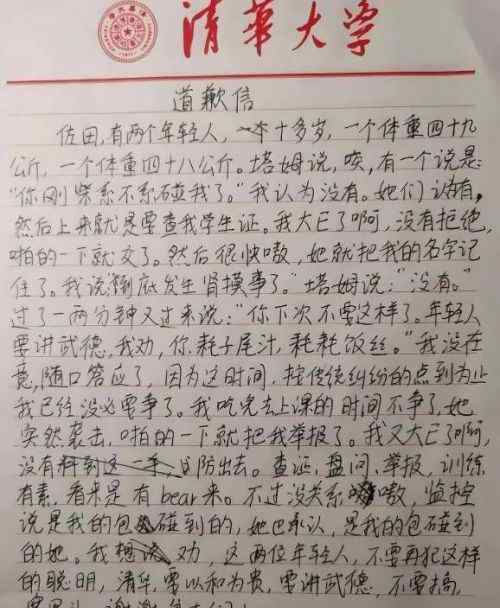 清華大学
道歉信
佐田,有两个年轻人,一个十多岁,一个体重四十九
公斤,一个体重四十八公斤。塔姆说,唉,有一个说是:
"你刚柴系不系碰我了。"我认为没有。她们认为有,
然后上来就是要查我学生证。我大E了啊,没有拒绝,
啪的一下就交了。然后很快嗷,她就把我的名字记
住了。我说到底发生肾摸事了。"塔姆说:"没有。"
过了一两分钟又过来说:"你下次不要这样了。年轻人
要讲武德,我劝,你耗子尾汁,耗耗饭丝。"我没在
意,随口答应了,因为这时间,按传统纠纷的点到为止
我已经没必要争了。我吃完去上课的时间不争了,她
突然袭击,啪的一下就把我举报了。我又大E了啊,
没有防出去。查证、盘问、举报,训练
有素,看来是有bear来。不过没关系嗷,监控
说是我的包碰到的,她也承认,是我的包碰到
的她。我劝,这两位年轻人,不要再犯这样
的聪明,清华,要以和为贵,要讲武德,不要搞,